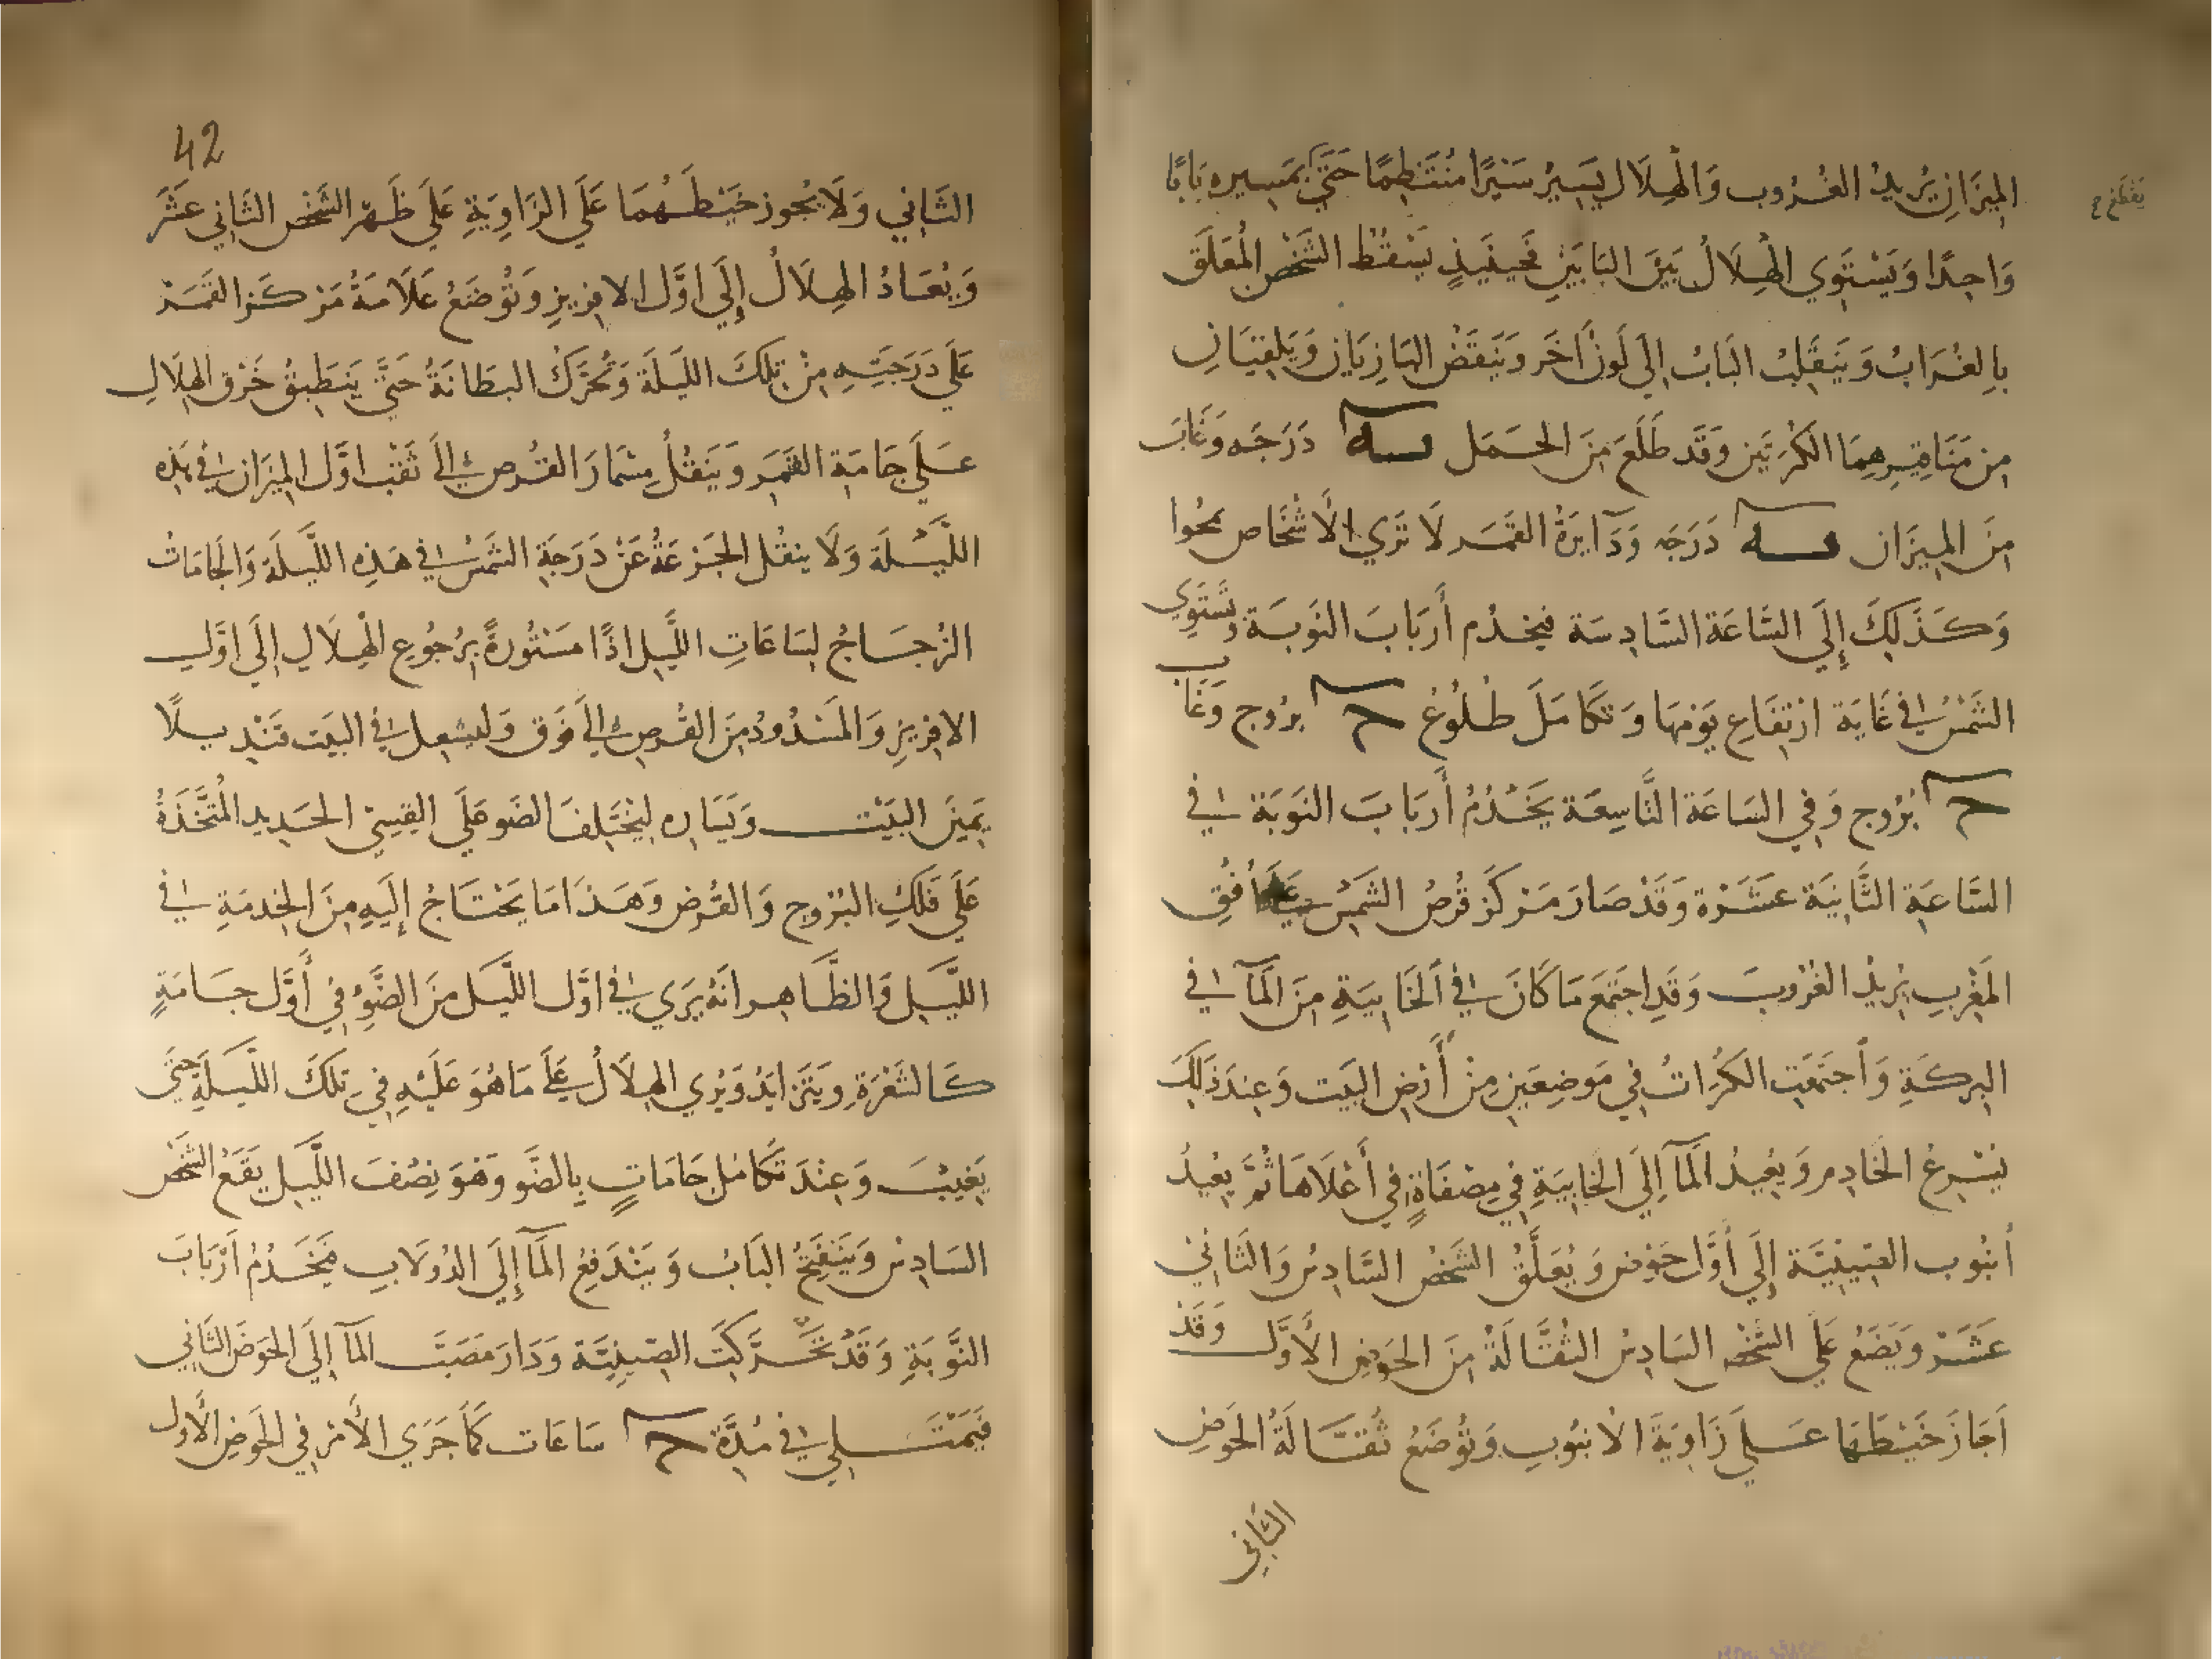 الميزان يريد الغروب والهلال يسير سيرا منتظما حتى بمسيره بابا
يقطع ع
واحدا ويستوي الهلال بين البابين فحينئذ يسقط الشخص المعلق
بالغراب وينقلب الباب الى لون آخر وينقض البازيان ويلقيان
من مناقيرهما الكرتين وقد طلع من الحمل درجه وغاب
من الميزان درجه ودايرة القمر لا تري الاشخاص نحوا
وكذلك إلى الساعة السادسة فيخدم أرباب النوبة وتستوي
الشمس في غاية ارتفاع يومها وتكامل طلوع بروج وغاب
بروج وفي الساعة التاسعة يخدم أرباب النوبة في
الساعة الثانية عشرة وقد صار مركز قرص الشمس على أفق
المغرب يريد الغروب وقد اجتمع ما كان في الخابية من المآ في
البركة واجتمعت الكرات في موضعين من أرض البيت وعند ذلك
يسرع الخادم ويعيد المآ إلى الخابية في مصفاة في أعلاها ثم يعيد
أنبوب الصينية إلى أول حوض ويعلق الشخص السادس والثاني
عشر ويضع على الشخص السادس الثقالة من الحوض الأول وقد
اجاز خيطها على زاوية الانبوب وتوضع ثقالة الحوض
الثاني
42
الثاني ولا يجوز خيطهما على الزاوية على ظهر الشخص الثاني عشر
ويعاد الهلال إلى اول الافريز وتوضع علامة مركز القمر
على درجته من تلك الليلة وتحرك البطانة حتى ينطبق خرق الهلال
على جامة القمر وينقل مسمار القرص الى ثقب اول الميزان في هذه
الليلة ولا ينقل الجزعة عن درجة الشمس في هذه الليلة والجامات
الزجاج لساعات الليل اذا مستورة برجوع الهلال إلى اول
الافريز والمسدود من القرص الى فوق وليشعل في البيت قنديلا
يمين البيت ويساره ليختلف الضو على القسي الحديد المتخذة
على فلك البروج والقرص وهذا ما يحتاج إليه من الخدمة في
الليل والظاهر انه يري في اول الليل من الضوء في أول جامة
كالشعرة ويتزايد ويري الهلال على ما هو عليه في تلك الليلة حتى
يغيب وعند تكامل جامات بالضو وهو نصف الليل يقع الشخص
السادس وينفتح الباب ويندفع المآ إلى الدولاب فيخدم أرباب
النوبة وقد تحركت الصينية ودار مصب المآ إلى الحوض الثاني
فيمتلي في مدة ساعات كما جرى الأمر في الحوض الأول